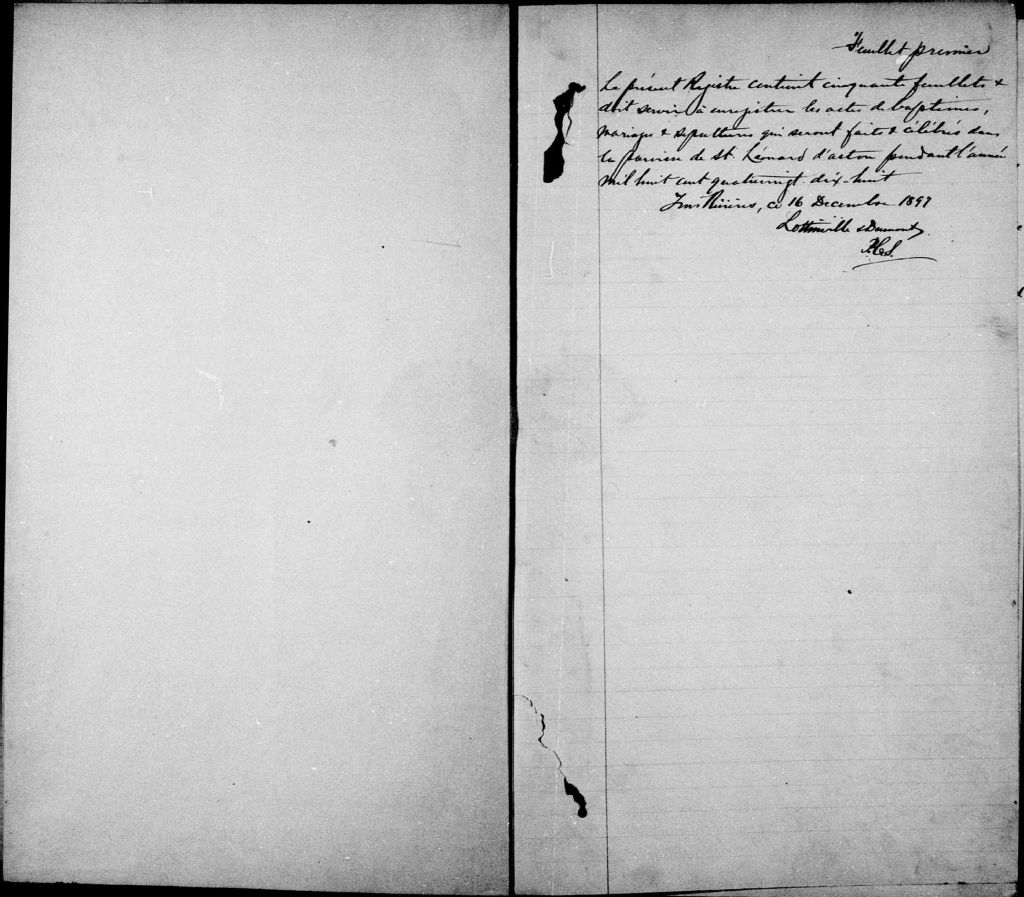 Feuillet premier
Le présent Registre contient cinquante feuillets &
doit servir à enregistrer les actes de baptêmes,
mariages & sépultures qui seront faits & célébrés dans
la paroisse de St. Léonard d'aston pendant l'année
mil huit cent quatrevingt dix-huit
Trois Rivières, ce 16 Decembre 1897
Lottinville & Dumont
P.C.S.